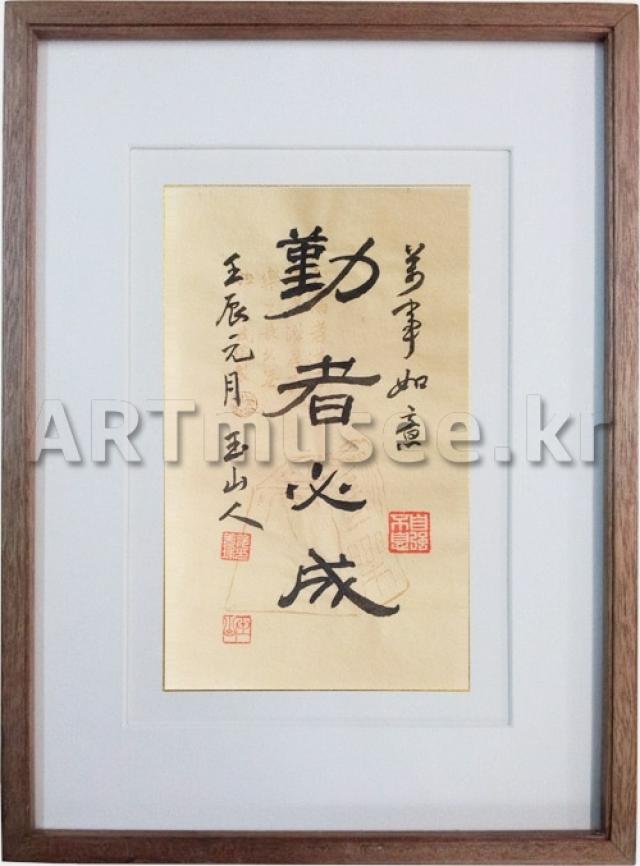 萬事如意
勤者必成
壬辰元月 玉山人
自强不息
ARTmusee.kr